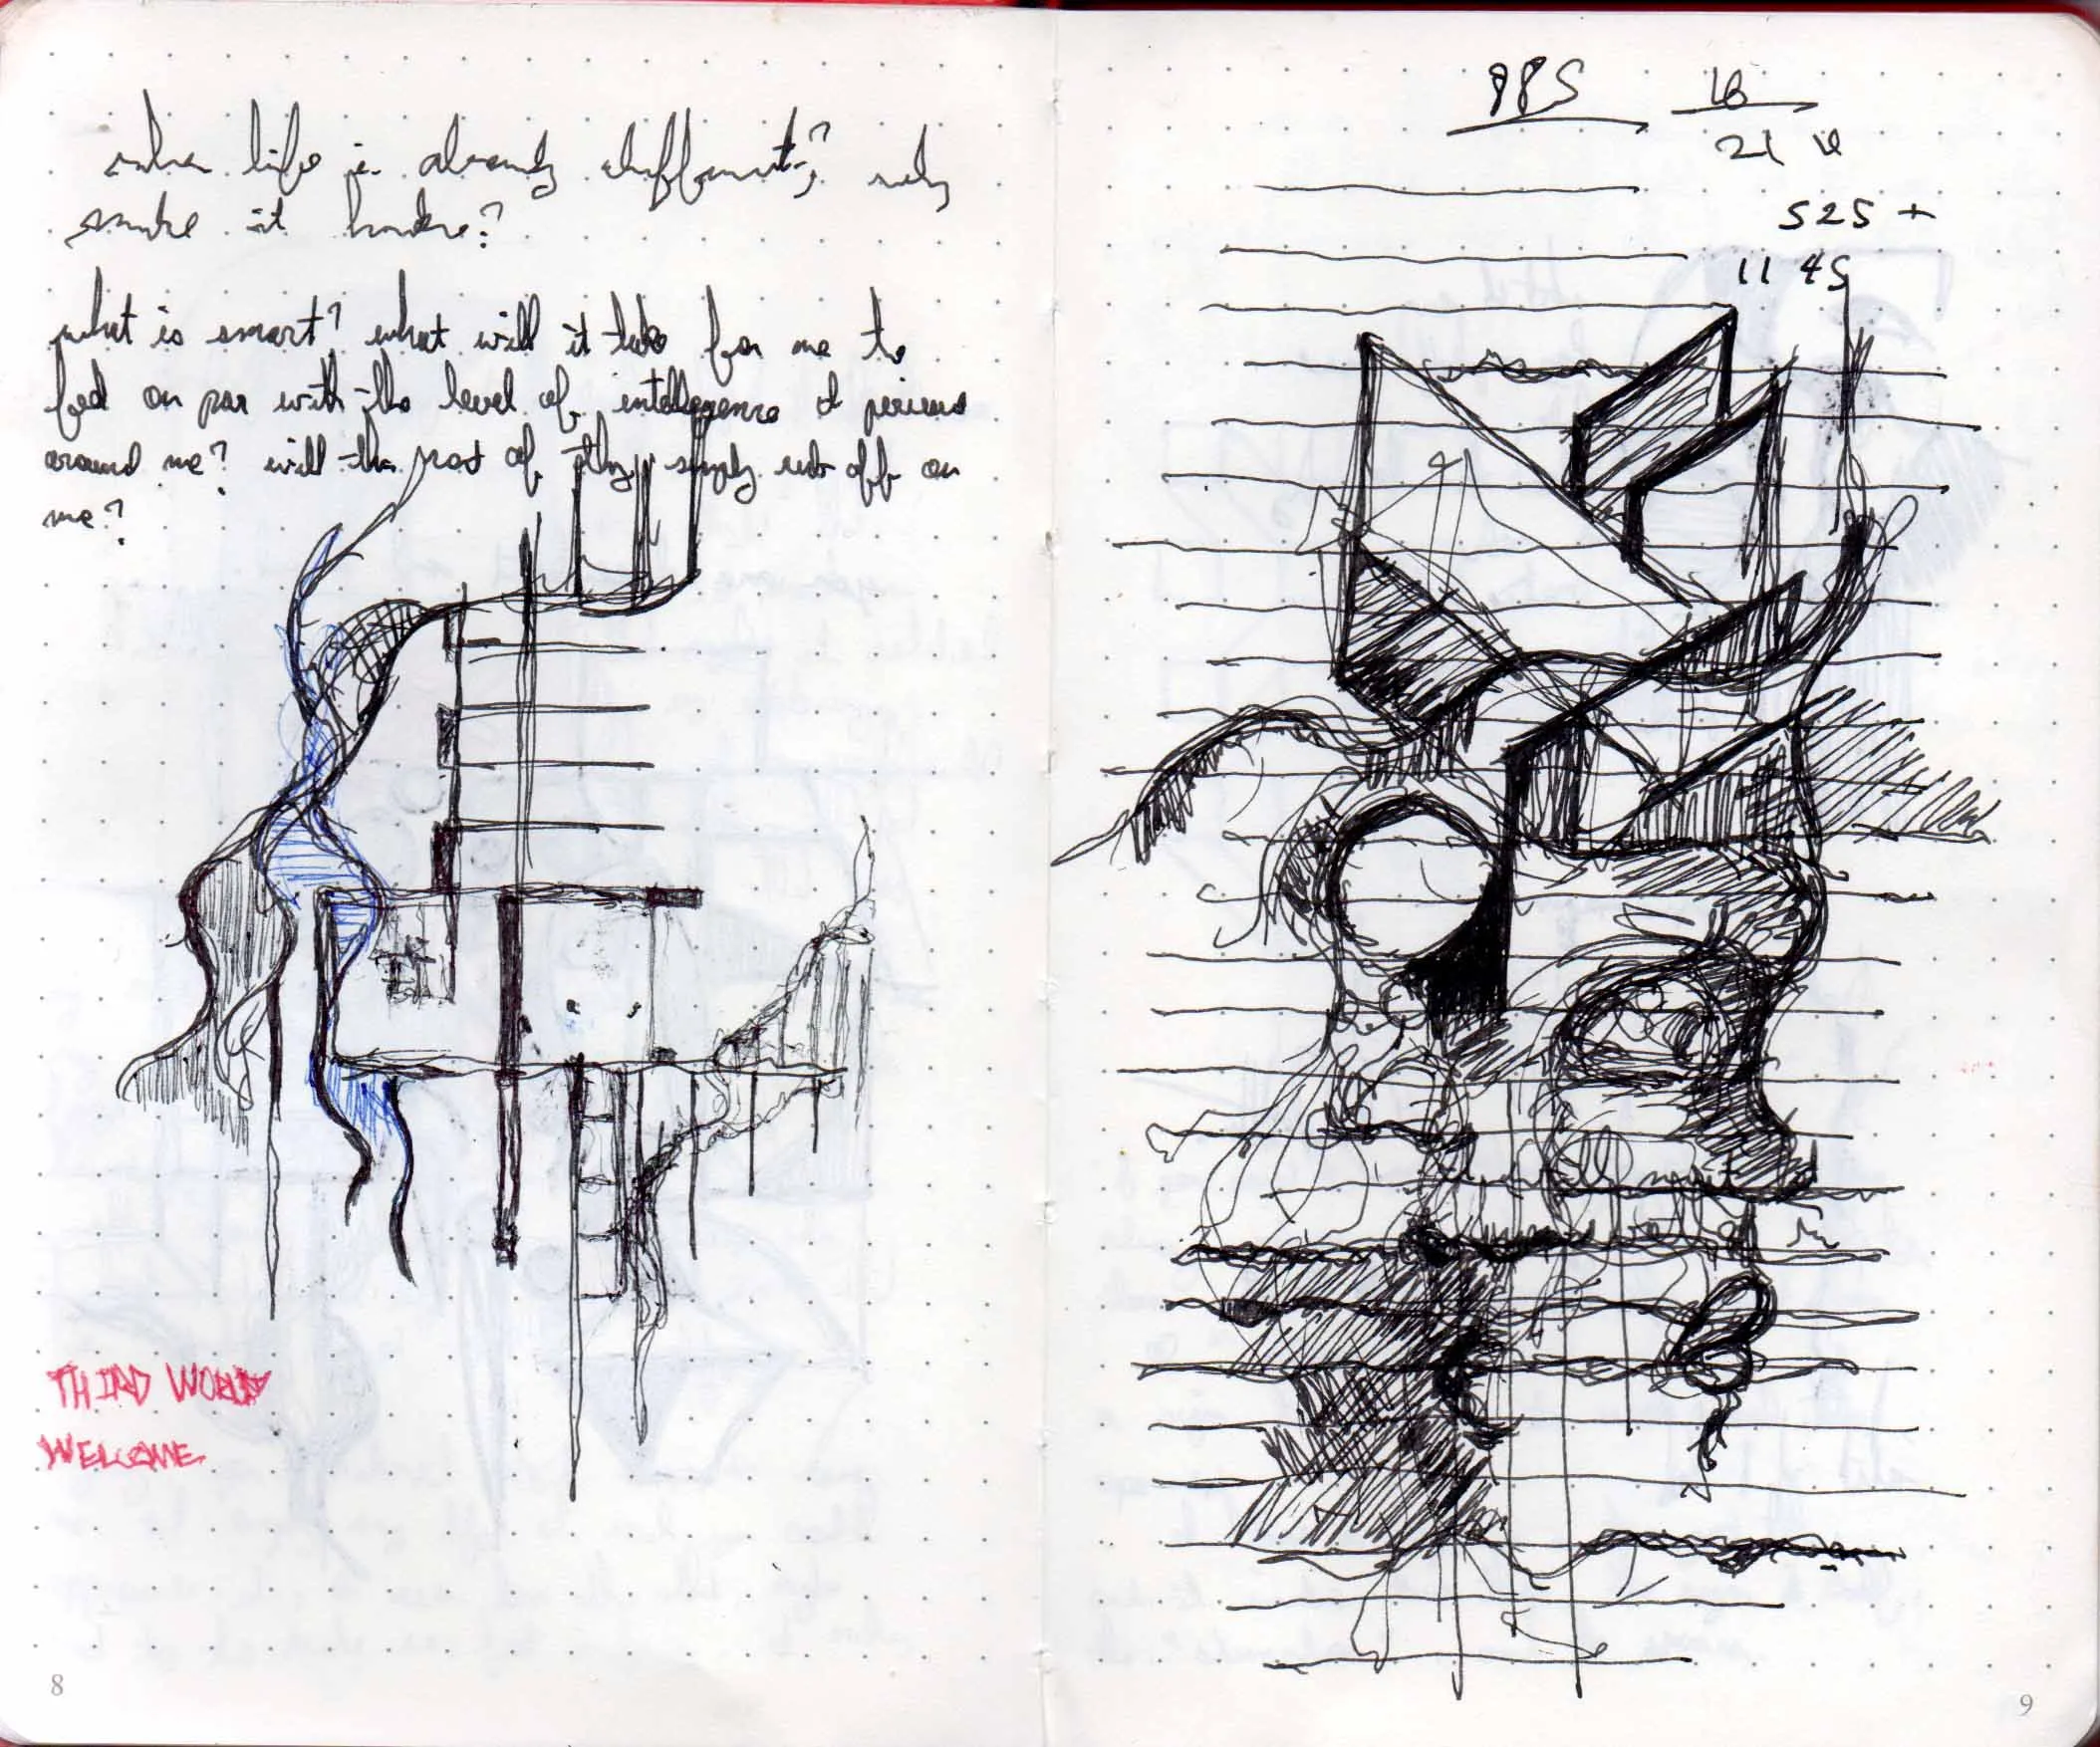 when life is already difficult, why
make it harder?
what is smart? what will it take for me to
feel on par with the level of intelligence I perceive
around me? will the rest of simply rub off on
me?
THIRD WORLD
WELCOME
8
PPS 16
21
525 +
11 45
9